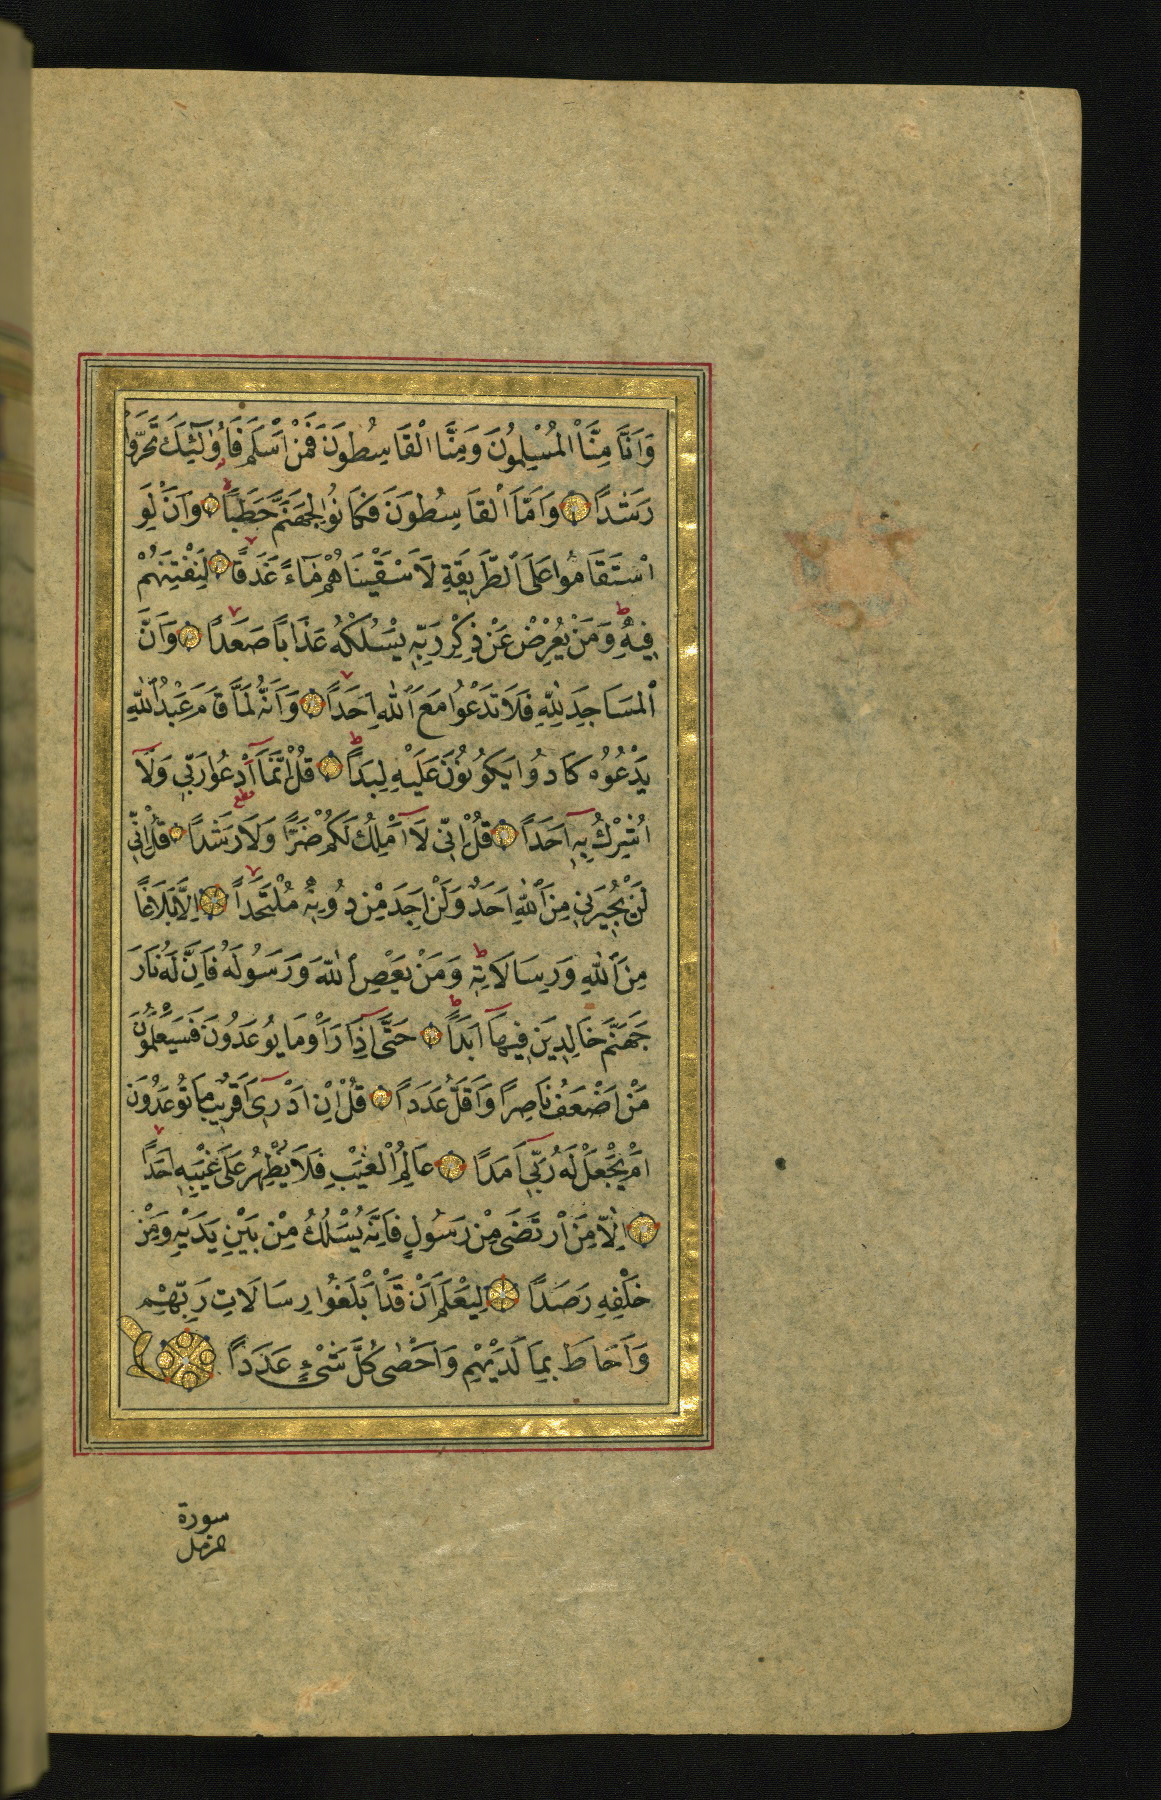 وَاَنَّا مِنَّا الْمُسْلِمُونَ وَمِنَّا الْقَاسِطُونَ فَمَنْ اَسْلَمَ فَاُولٰٓئِكَ تَحَرَّوْا
رَشَدًا وَاَمَّا الْقَاسِطُونَ فَكَانُوا لِجَهَنَّمَ حَطَبًا وَاَنْ لَوِ
اسْتَقَامُوا عَلَى الطَّرِيقَةِ لَاَسْقَيْنَاهُمْ مَاءً غَدَقًا لِنَفْتِنَهُمْ
فِيهِ وَمَنْ يُعْرِضْ عَنْ ذِكْرِ رَبِّهِ يَسْلُكْهُ عَذَابًا صَعَدًا وَاَنَّ
الْمَسَاجِدَ لِلّٰهِ فَلَا تَدْعُوا مَعَ اللّٰهِ اَحَدًا وَاَنَّهُ لَمَّا قَامَ عَبْدُ اللّٰهِ
يَدْعُوهُ كَادُوا يَكُونُونَ عَلَيْهِ لِبَدًا قُلْ اِنَّمَا اَدْعُوا رَبِّي وَلَا
اُشْرِكُ بِهِ اَحَدًا قُلْ اِنِّي لَا اَمْلِكُ لَكُمْ ضَرًّا وَلَا رَشَدًا قُلْ اِنِّي
لَنْ يُجِيرَنِي مِنَ اللّٰهِ اَحَدٌ وَلَنْ اَجِدَ مِنْ دُونِهِ مُلْتَحَدًا اِلَّا بَلَاغًا
مِنَ اللّٰهِ وَرِسَالَاتِهِ وَمَنْ يَعْصِ اللّٰهَ وَرَسُولَهُ فَاِنَّ لَهُ نَارَ
جَهَنَّمَ خَالِدِينَ فِيهَا اَبَدًا حَتَّى اِذَا رَاَوْا مَا يُوعَدُونَ فَسَيَعْلَمُونَ
مَنْ اَضْعَفُ نَاصِرًا وَاَقَلُّ عَدَدًا قُلْ اِنْ اَدْرِي اَقَرِيبٌ مَا تُوعَدُونَ
اَمْ يَجْعَلُ لَهُ رَبِّي اَمَدًا عَالِمُ الْغَيْبِ فَلَا يُظْهِرُ عَلَى غَيْبِهِ اَحَدًا
اِلَّا مَنِ ارْتَضَى مِنْ رَسُولٍ فَاِنَّهُ يَسْلُكُ مِنْ بَيْنِ يَدَيْهِ وَمِنْ
خَلْفِهِ رَصَدًا لِيَعْلَمَ اَنْ قَدْ اَبْلَغُوا رِسَالَاتِ رَبِّهِمْ
وَاَحَاطَ بِمَا لَدَيْهِمْ وَاَحْصٰى كُلَّ شَيْءٍ عَدَدًا
سورة
مزمل